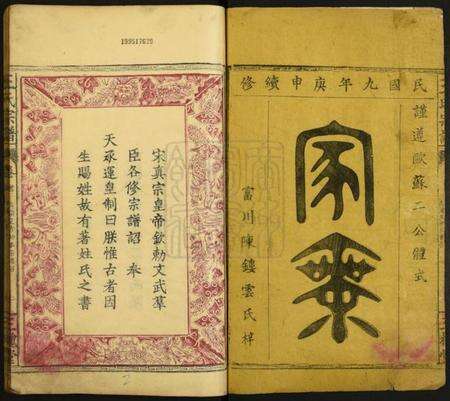 民國九年庚申續修
謹遵歐蘇二公體式
家乘
富川陳鏤雲氏梓
宋真宗皇帝欽勅文武羣
臣各修宗譜詔 奉
天承運皇制曰朕惟古者因
生賜姓故有著姓氏之書
王氏宗譜